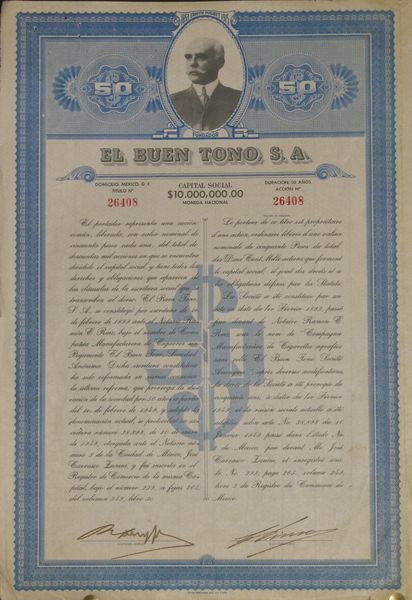 50
50
FUNDADOR
EL BUEN TONO, S. A.
DOMICILIO: MEXICO, D. F.
TITULO Nº
26408
CAPITAL SOCIAL
$10.000,000.00
MONEDA NACIONAL
DURACION: 50 AÑOS
ACCION Nº
26408
El portador representa una acción
común, liberada, con valor nominal de
cincuenta pesos cada una, del total de
doscientas mil acciones en que se encuentra
dividido el capital social, y tiene todos los
derechos y obligaciones que aparecen de
las cláusulas de la escritura social
transcritas al dorso. El Buen Tono
S. A., se constituyó por escritura
de febrero de 1893 ante el Notario Ra-
món E. Ruiz, bajo el nombre de Com-
pañía Manufacturera de Cigarros sin
Pegamento El Buen Tono, Sociedad
Anónima. Dicha escritura constitutiva
ha sido reformada en varias
la última reforma, que prorroga la du-
ración de la sociedad por 50 años a partir
del 1o. de febrero de 1943, y adopta la
denominación actual, se protocolizó por es-
critura número 38,898, de 10 de
de 1943, otorgada ante el Notario nú-
mero 3 de la Ciudad de México, José
Carrasco Zanini, y fué inscrita en el
Registro de Comercio de la misma Ca-
pital, bajo el número 233, a fojas 265
del volumen 249, libro 3o.
Le porteur de ce titre est propriétaire
d'une action, ordinaire libérée d'une valeur
nominale de cinquante Pesos du total
des Deux Cent Mille actions qui forment
le capital social, et jouit des droits et a
les obligations définis par les Statuts.
La Société a été constituée par
date du 1er Février 1893, passé
par devant le Notaire Ramon E.
Ruiz sous le nom de "Compagnie
Manufacturière de Cigarettes
sans colle El Buen Tono Société
Anonyme"; après diverses modifications,
la durée de la Société a été prorogée de
cinquante ans, à dater du 1er Février
1943 et la raison sociale actuelle a été
adoptée selon acte No. 38,898 du 10
1943 passé dans l'étude No.
3 de Mexico, par devant Me. José
Carrasco Zanini, et enregistré sous
le No. 233, page 265, volume 249,
livre 3 du Registre du Commerce de
Mexico.